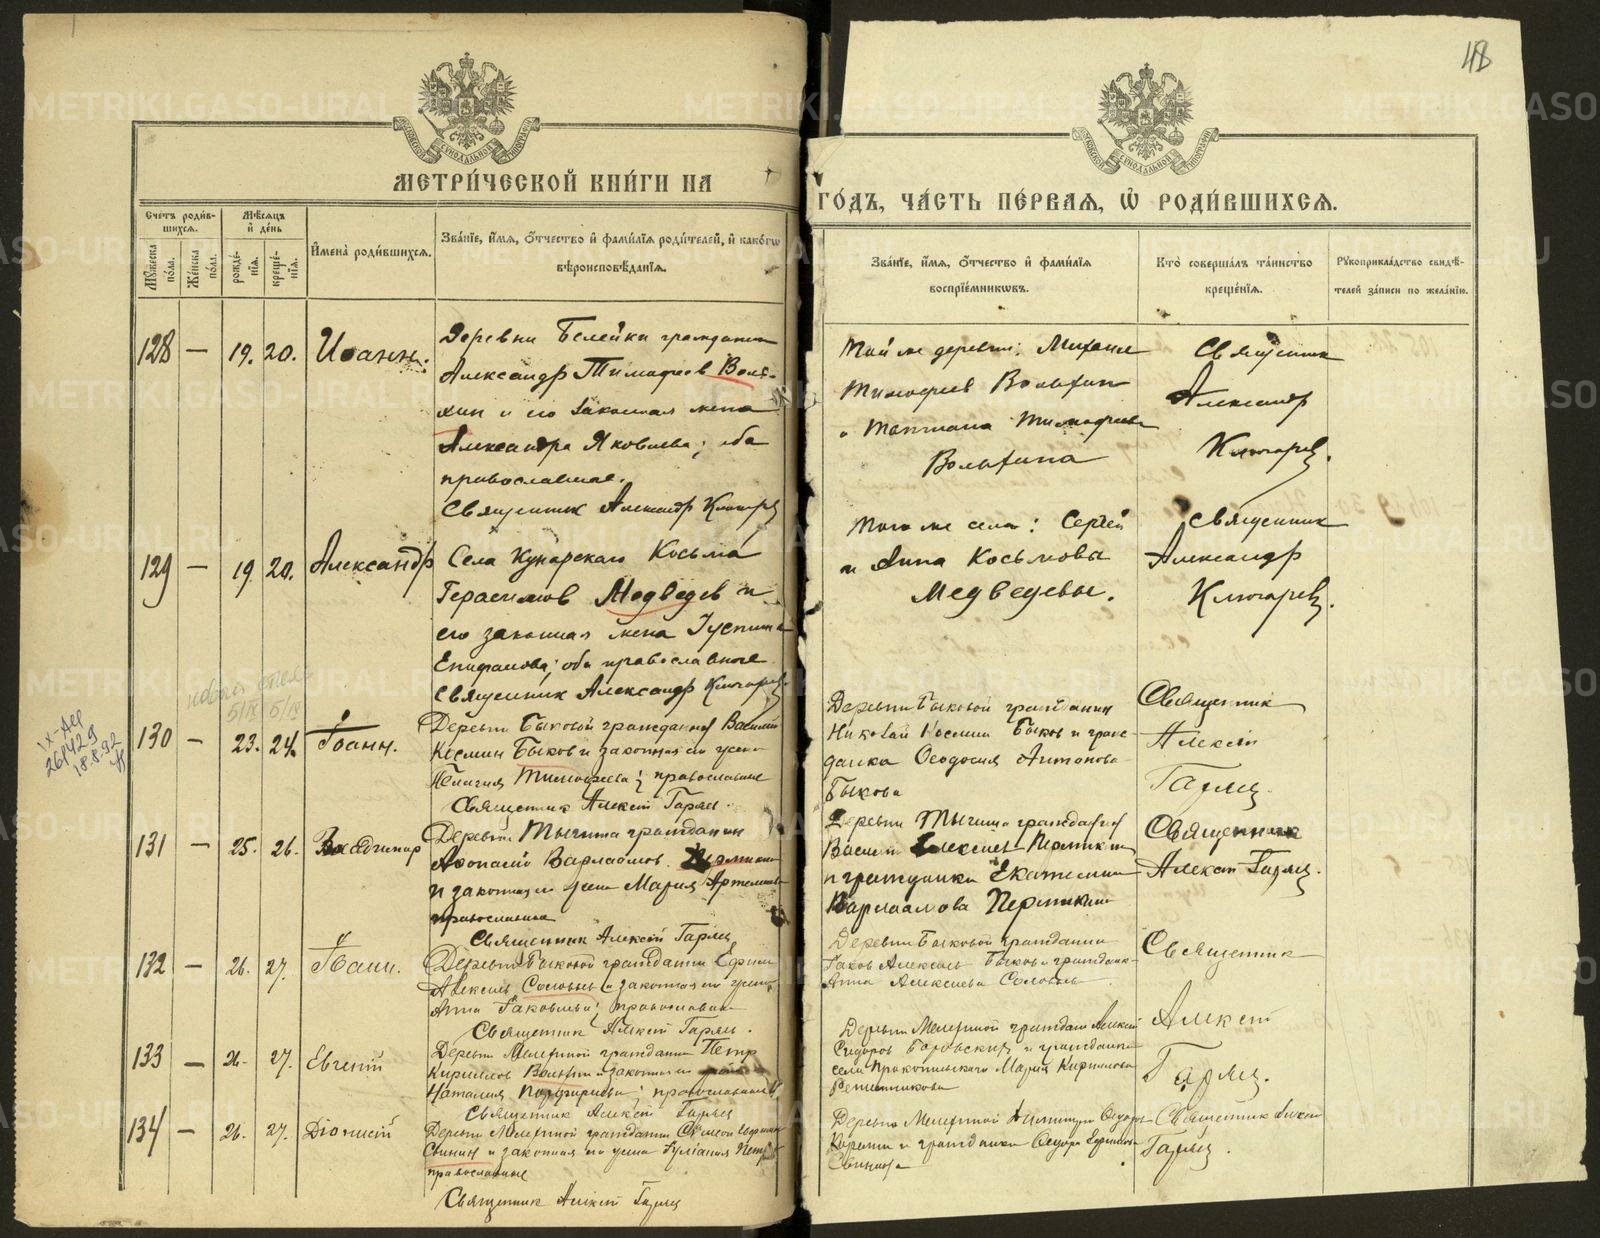 48
МЕТРИ́ЧЕСКОЙ КНИ́ГИ НА
ГО́ДЪ, ЧА́СТЬ ПЕ́РВАЯ, Ѡ҆ РОДИ́ВШИХСЯ.
Сче́тъ роди́в-
шихся.
Мѣ́сяцъ
и҆ де́нь
И҆мена̀ роди́вшихся.
Зва́нїе, и҆́мя, ѻ҆́тчество и҆ фами́лїя роди́телей, и҆ како́гѡ
вѣроисповѣ́данїя.
Зва́нїе, и҆́мя, ѻ҆́тчество и҆ фами́лїя
воспрїе́мникѡвъ.
Кто̀ соверша́лъ та́инство
креще́нїя.
Рꙋкоприкла́дство свидѣ́-
телей за́писи по жела́нїю.
Мꙋ́жеска
по́ла.
Же́нска
по́ла.
рожде́-
нїя.
креще́-
нїя.
128 — 19. 20. Иоанн.
Деревни Белейки гражданин
Александр Тимофеев Воль-
хин и его законная жена
Александра Яковлева; оба
православные.
Священник Александр Ключарев
Той же деревни: Михаил
Тимофеев Вольхин
и Татиана Тимофеева
Вольхина
Священник
Александр
Ключарев.
129 — 19 20. Александр
Села Кунарскаго Косьма
Герасимов Медведев и
его законная жена Иустина
Епифанова; оба православные
Священник Александр Ключарев.
Того же села: Сергей
и Анна Косьмовы
Медведевы.
Священник
Александр
Ключарев.
новый стиль
5/IX 6/IX
IX-АИ
261429
18.8.92
130 — 23. 24. Іоанн.
Деревни Быковой гражданин Василий
Космин Быков и законная его жена
Тимофеева; православные
Священник Алексей Гаряев.
Деревни Быковой гражданин
Николай Космин Быков и граж-
данка Феодосия Антонова
Быкова
Священник
Алексей
Гаряев.
131 — 25. 26. Владимир
Деревни Мычина гражданин
Афонасий Варлаамов Пермикин
и законная его жена Мария Артемьева
православные
Священник Алексей Гаряев
Деревни Мычина гражданин
Василий Алексеев Пермикин
и гражданка Екатерина
Варлаамова Пермикина
Священник
Алексей Гаряев.
132 — 26. 27. Іоанн.
Деревни Быковой гражданин Ефим
Алексеев Соловьев и законная его жена
Анна Іаковлева; православные
Священник Алексей Гаряев.
Деревни Быковой гражданин
Іаков Алексеев Быков и гражданка
Анна Алексеева Соловьева
Священник
Алексей
Гаряев.
133 — 26. 27. Евгений
Деревни Мелехиной гражданин Петр
Кириллов Вольхин и законная его
Наталия Порфирьева; православные
Священник Алексей Гаряев
Деревни Мелехиной гражданин Алексей
Сидоров Боровских и гражданка
села Прокопьевскаго Мария Кириллова
Решетникова
134 — 26. 27. Діонисий
Деревни Мелехиной гражданин Симеон
Свинин и законная его жена Іулиания Петрова
православные
Священник Алексей Гаряев
Деревни Мелехиной Димитрий Федоров
и гражданка Федора Ефимова
Свинина
Священник Алексей
Гаряев.
METRIKI.GASO-URAL.RU